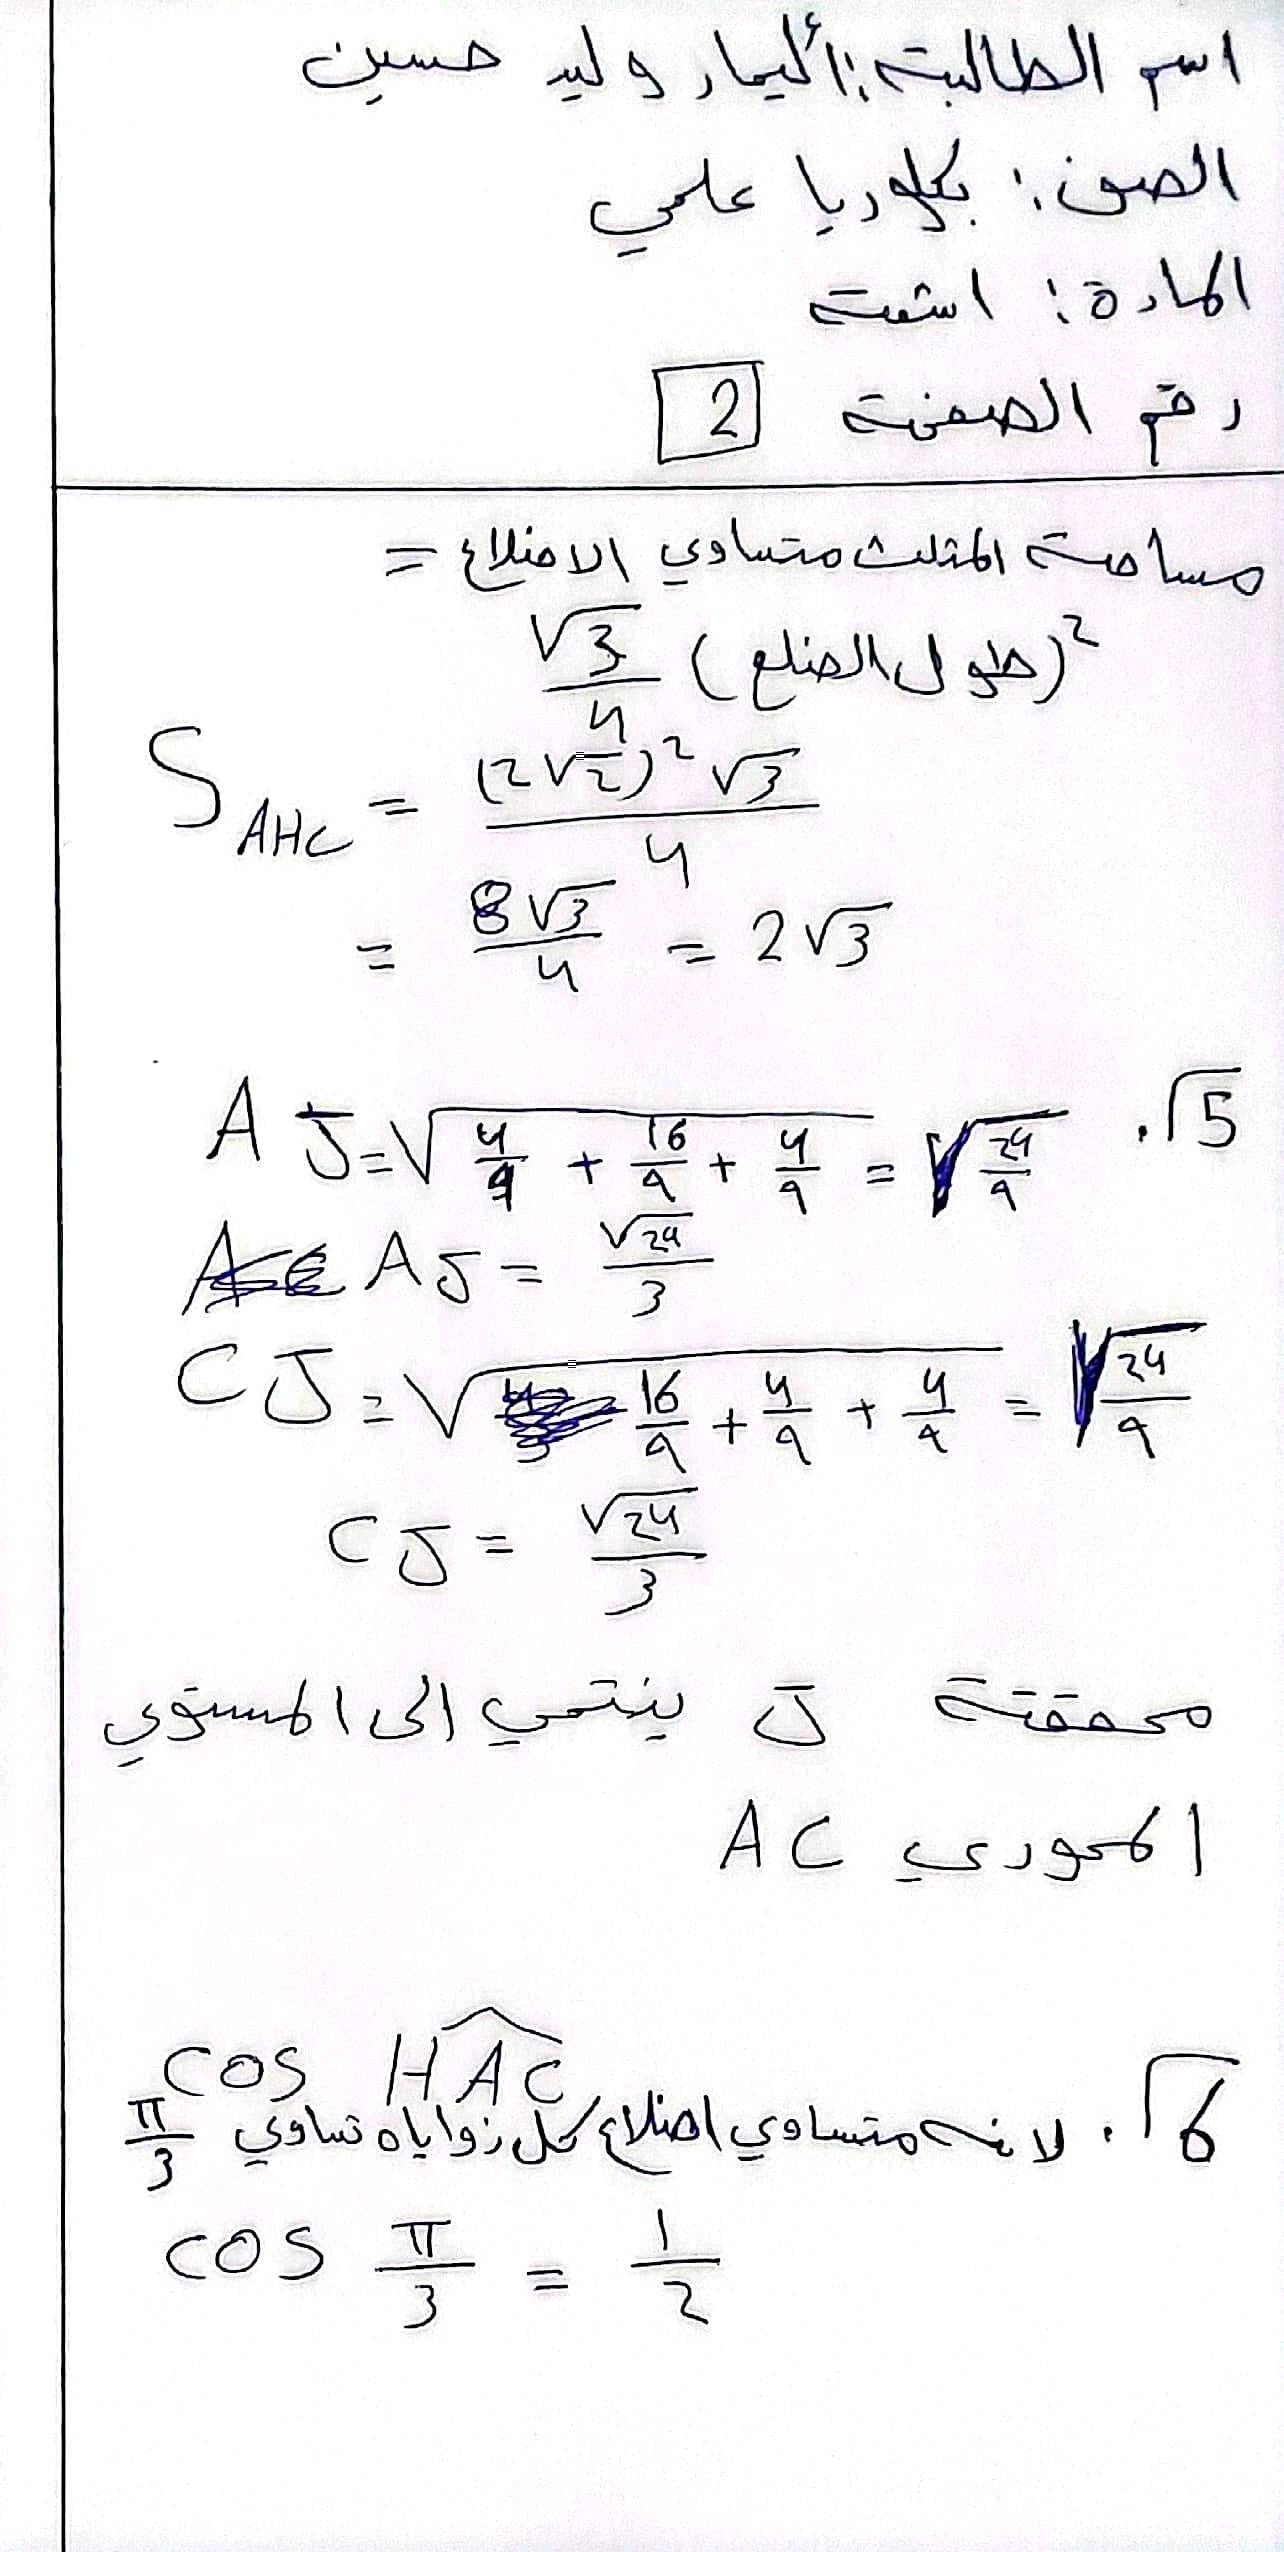 اسم الطالبة: أليمار وليد حسين
الصف: بكلوريا علمي
المادة: اشعت
رقم الصفحة 2
مساحة المثلث متساوي الاضلاع =
(طول الضلع)² √3/4
S AHC = (2√2)² √3 / 4
= 8√3/4 = 2√3
5. AJ = √(4/9 + 16/9 + 4/9) = √(24/9)
AJ = √24/3
CJ = √(16/9 + 4/9 + 4/9) = √(24/9)
CJ = √24/3
محققة J ينتمي إلى المستوي
المحوري AC
cos HAC
6. لانه متساوي اضلاع كل زواياه تساوي π/3
cos π/3 = 1/2